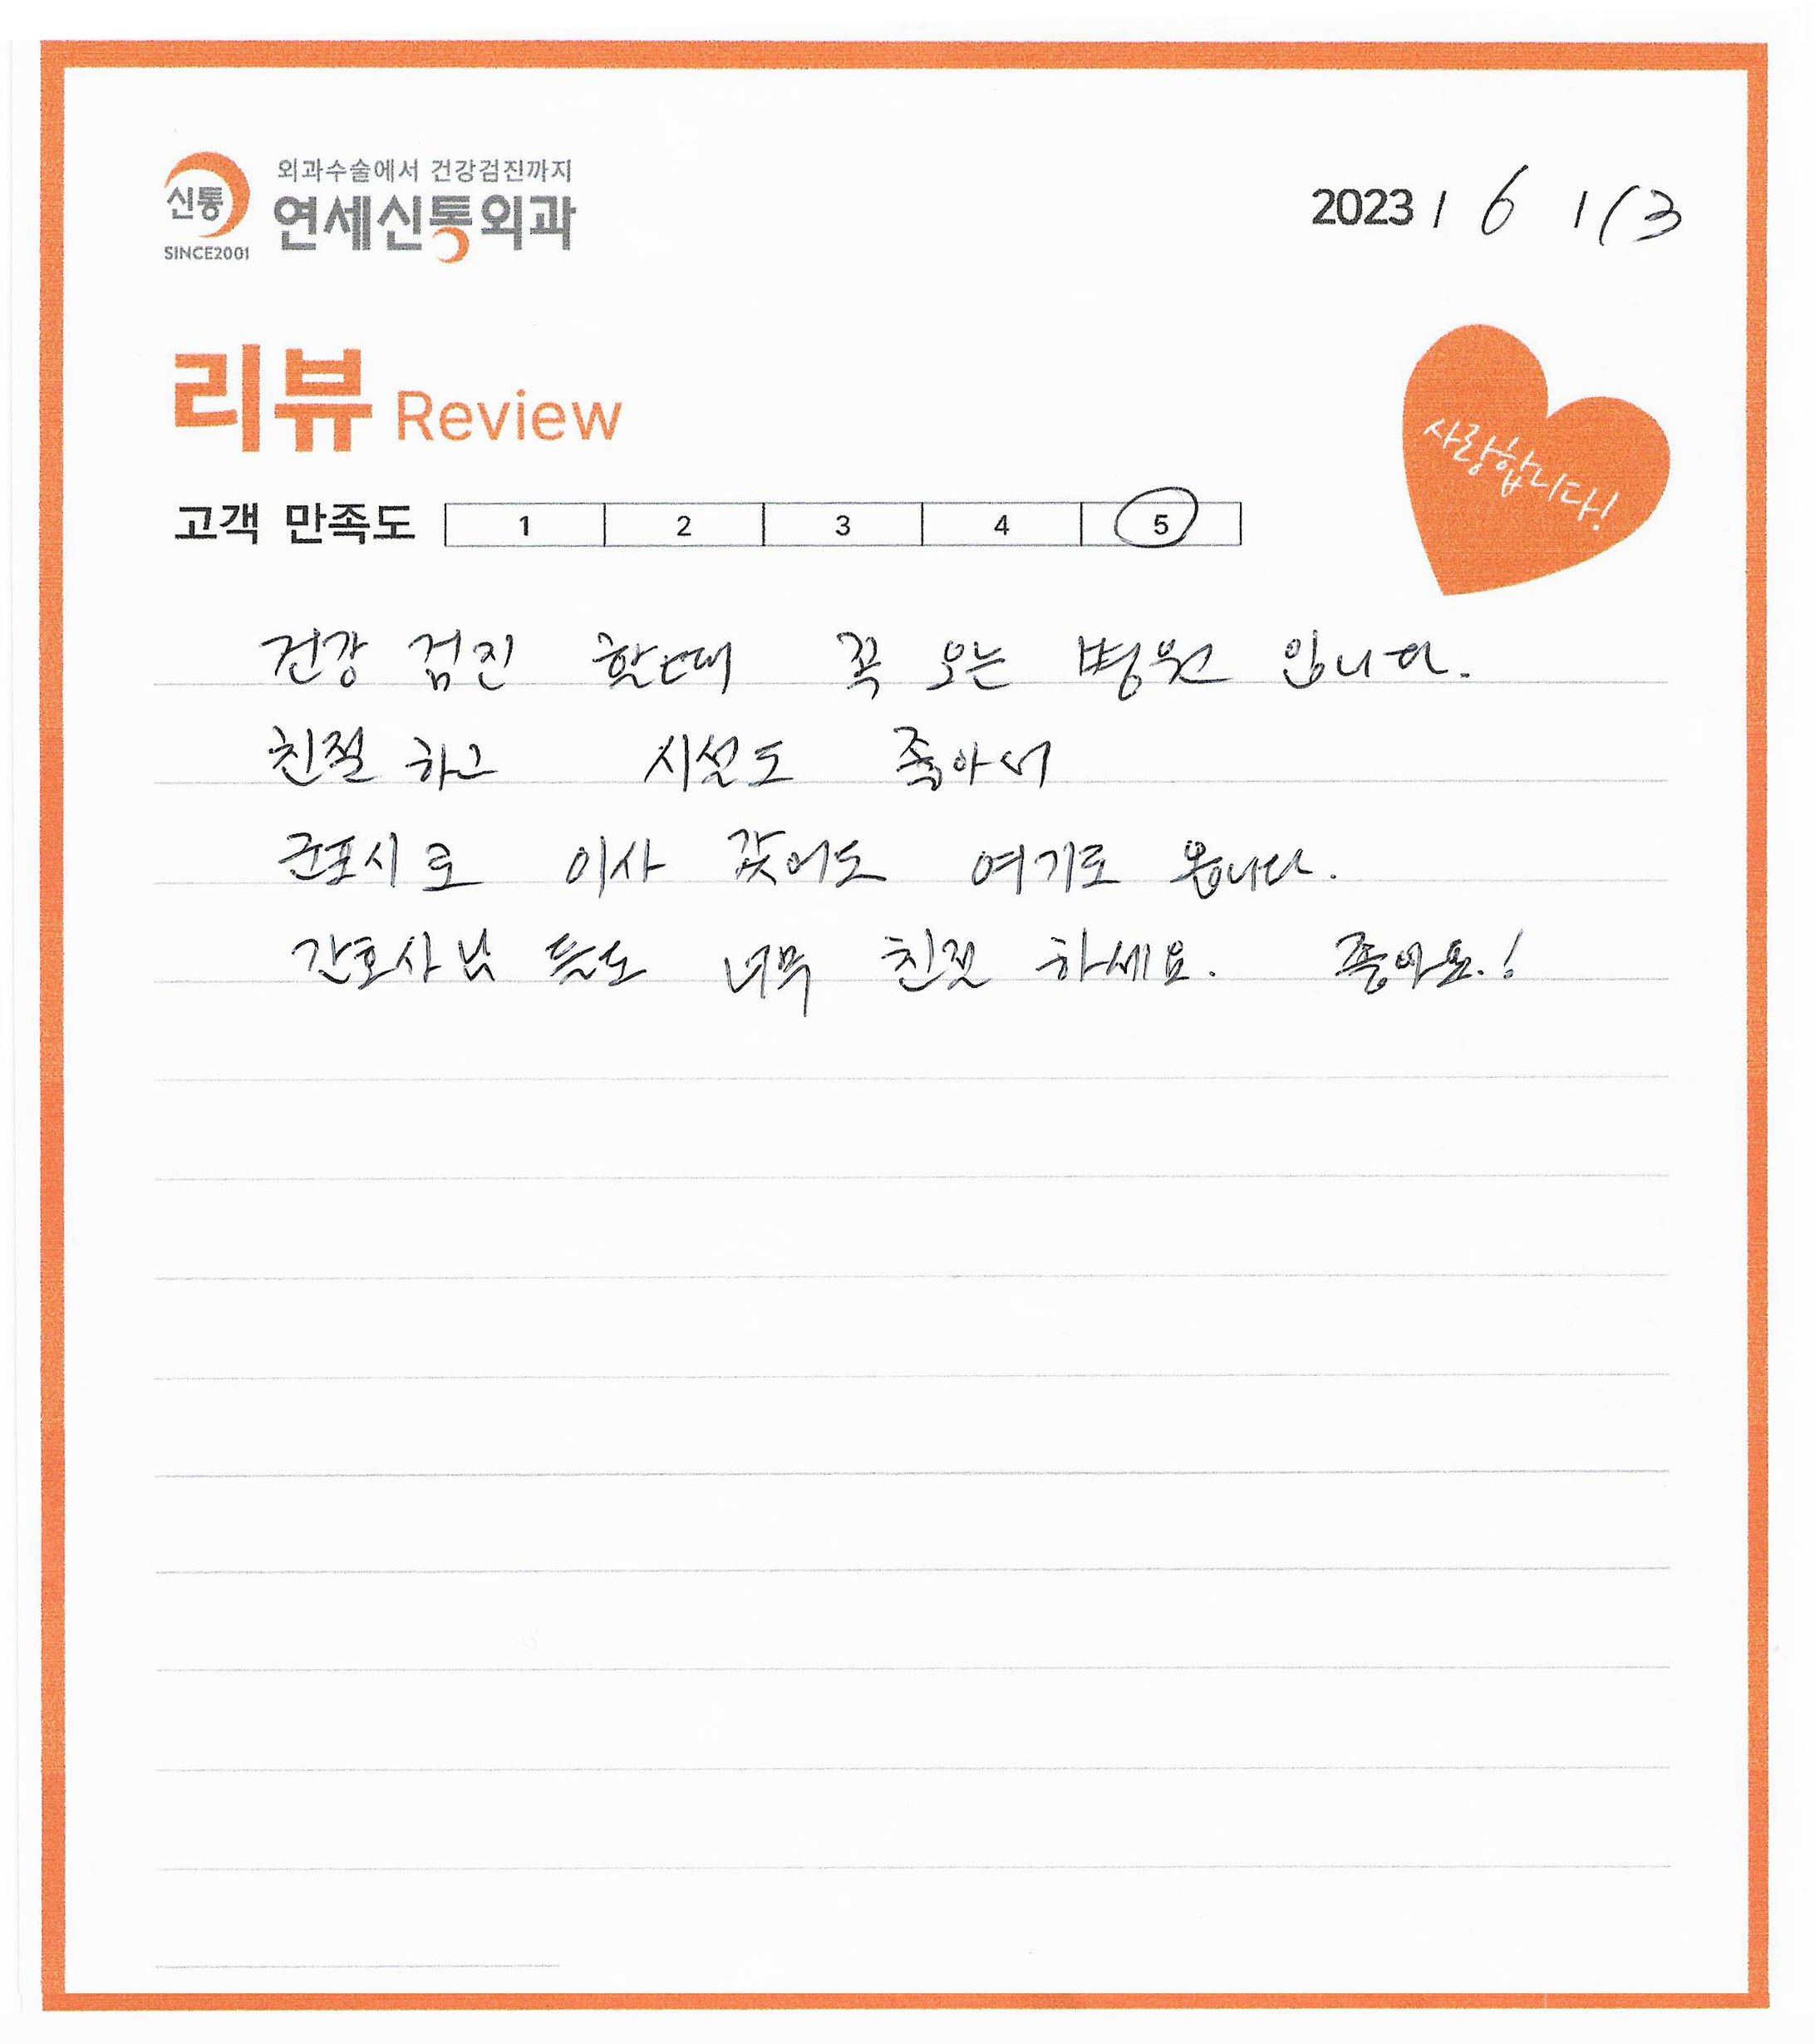 신통
SINCE2001
외과수술에서 건강검진까지
연세신통외과
2023 / 6 / 13
리뷰 Review
사랑합니다!
고객 만족도 1 2 3 4 5
건강 검진 할때 꼭 오는 병원 입니다.
친절 하고 시설도 좋아서
군포시로 이사 갔어도 여기로 옵니다.
간호사님 들도 너무 친절 하세요. 좋아요.!